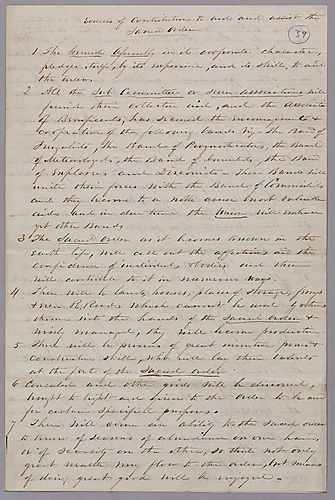 Sources of Contribution to aid and assist the
Sacred Order
39
1 The Grand Assembly in its corporate character,
pledges itself, by its experience, and its skill, to aid
the Order.
2 All the Sub Committees or Seven Associations will
permit their collective aid, and the Association
of Beneficents, has secured the encouragements &
cooperation of the following bands viz. The Band of
The Band of Prognosticators, the Band
of Meteorologists, the Band of the Band
of Explorers and These Bands will
unite their forces with the Band of Commercialists
and they become to a noble cause most valuable
aids and in due time the Union will embrace
yet other Bands.
3 The Sacred Order as it becomes known in the
earth life, will call out the affections and the
confidence of individuals, & they
will contribute to it in numerous ways.
4 There will be lands, homes, places of storage, farms
& even R. Roads which cannot be used by others,
thrown into the hands of the Sacred Order &
wisely managed, they will become productive
5 There will be persons of great inventive power &
Constructive skill, who will lay their talents
at the feet of the Sacred Order.
6 Concealed and other goods will be discovered,
brought to light and given to the Order to be used
for certain specific purposes.
7 There will come an ability to the Sacred Order
to know of seasons of abundance on one hand,
or of scarcity on the other, so that not only
great wealth may flow to the Order, but means
of doing great good will be enjoyed.